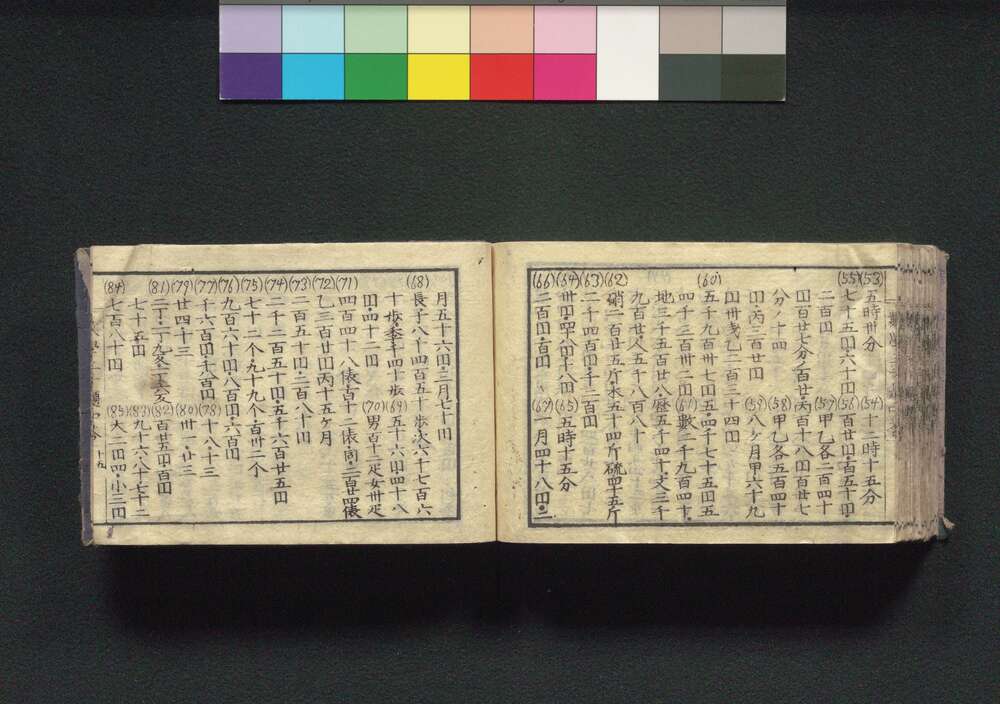 (53)五時卅分 (54)十二時・十五分
(55)七十五円・六十円 (56)百廿円・百五十円・
二百円 (57)甲乙各二百四十
円百廿七分ノ百廿丙百十八円百廿七
分ノ十四 (58)甲乙各五百四十
円丙三百廿円 (59)八ヶ月甲六十九
円卅戔乙二百三十四円
(60)五千九百卅七円五・四千七十五円五
四千三百卅二円 (61)數二千九百四十・
地三千五百廿八・歴五千四十・文三千
九百廿八五千八百八十
(62)硝二百廿五斤・炭五十四斤硫四十五斤
(63)二千四百円・千二百円
(64)卅円・十八円 (65)五時十五分
(66)二百円・百円 (67)一月四十八円・二
月五十六円・三月七十円
(68)長子八千四百五十歩次六千七百六
十歩・季千四十歩 (69)五十六円・四十八
円四十二円 (70)男百十二疋女卅疋
(71)四百四十八俵・百十二俵・同・二百廿四俵
(72)乙三百廿円丙十五ヶ月
(73)二百五十円・二百八十円
(74)二千二百五十円・五千六百廿五円
(75)七十二个・九十九个・百卅二个
(76)九百六十円八百円・六百円
(77)千六百円・千百円 (78)十八・十三
(79)廿四・十三 (80)卅一・廿三
(81)二丁・一丁 (82)百廿五円百円
七十五円 (83)九十六・八十七・七十二
(84)七百八十円 (85)大二円四・小三円